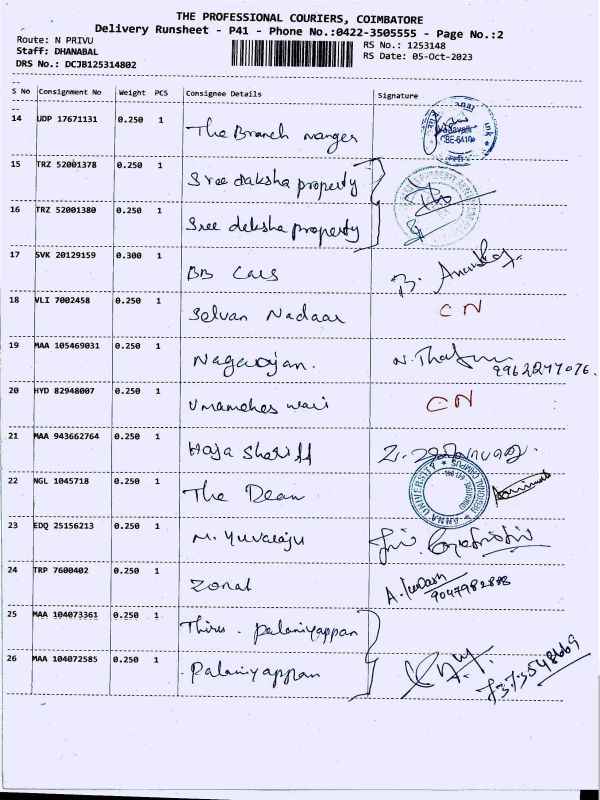 THE PROFESSIONAL COURIERS, COIMBATORE
Delivery Runsheet - P41 - Phone No.:0422-3505555 - Page No.:2
Route: N PRIVU
RS No.: 1253148
Staff: DHANABAL
RS Date: 05-Oct-2023
DRS No.: DCJB125314802
S No Consignment No Weight PCS Consignee Details Signature
14 UDP 17671131 0.250 1 The Branch manger
15 TRZ 52001378 0.250 1 Sree daksha property
16 TRZ 52001380 0.250 1 Sree deksha property
17 SVK 20129159 0.300 1 BB Cars B.
18 VLI 7002458 0.250 1 Selvan Nadaar CN
19 MAA 105469031 0.250 1 Nagarajan. N. 9962247076.
20 HYD 82948007 0.250 1 Umamaheswari CN
21 MAA 943662764 0.250 1 Haja Shariff
22 NGL 1045718 0.250 1 The Dean ANNA UNIVERSITY REGIONAL CAMPUS
23 EDQ 25156213 0.250 1 M. Yuvaraju
24 TRP 7600402 0.250 1 Zonal A. 9047982888
25 MAA 104073361 0.250 1 Thiru. Palaniyappan
26 MAA 104072585 0.250 1 Palaniyappan 7373548669